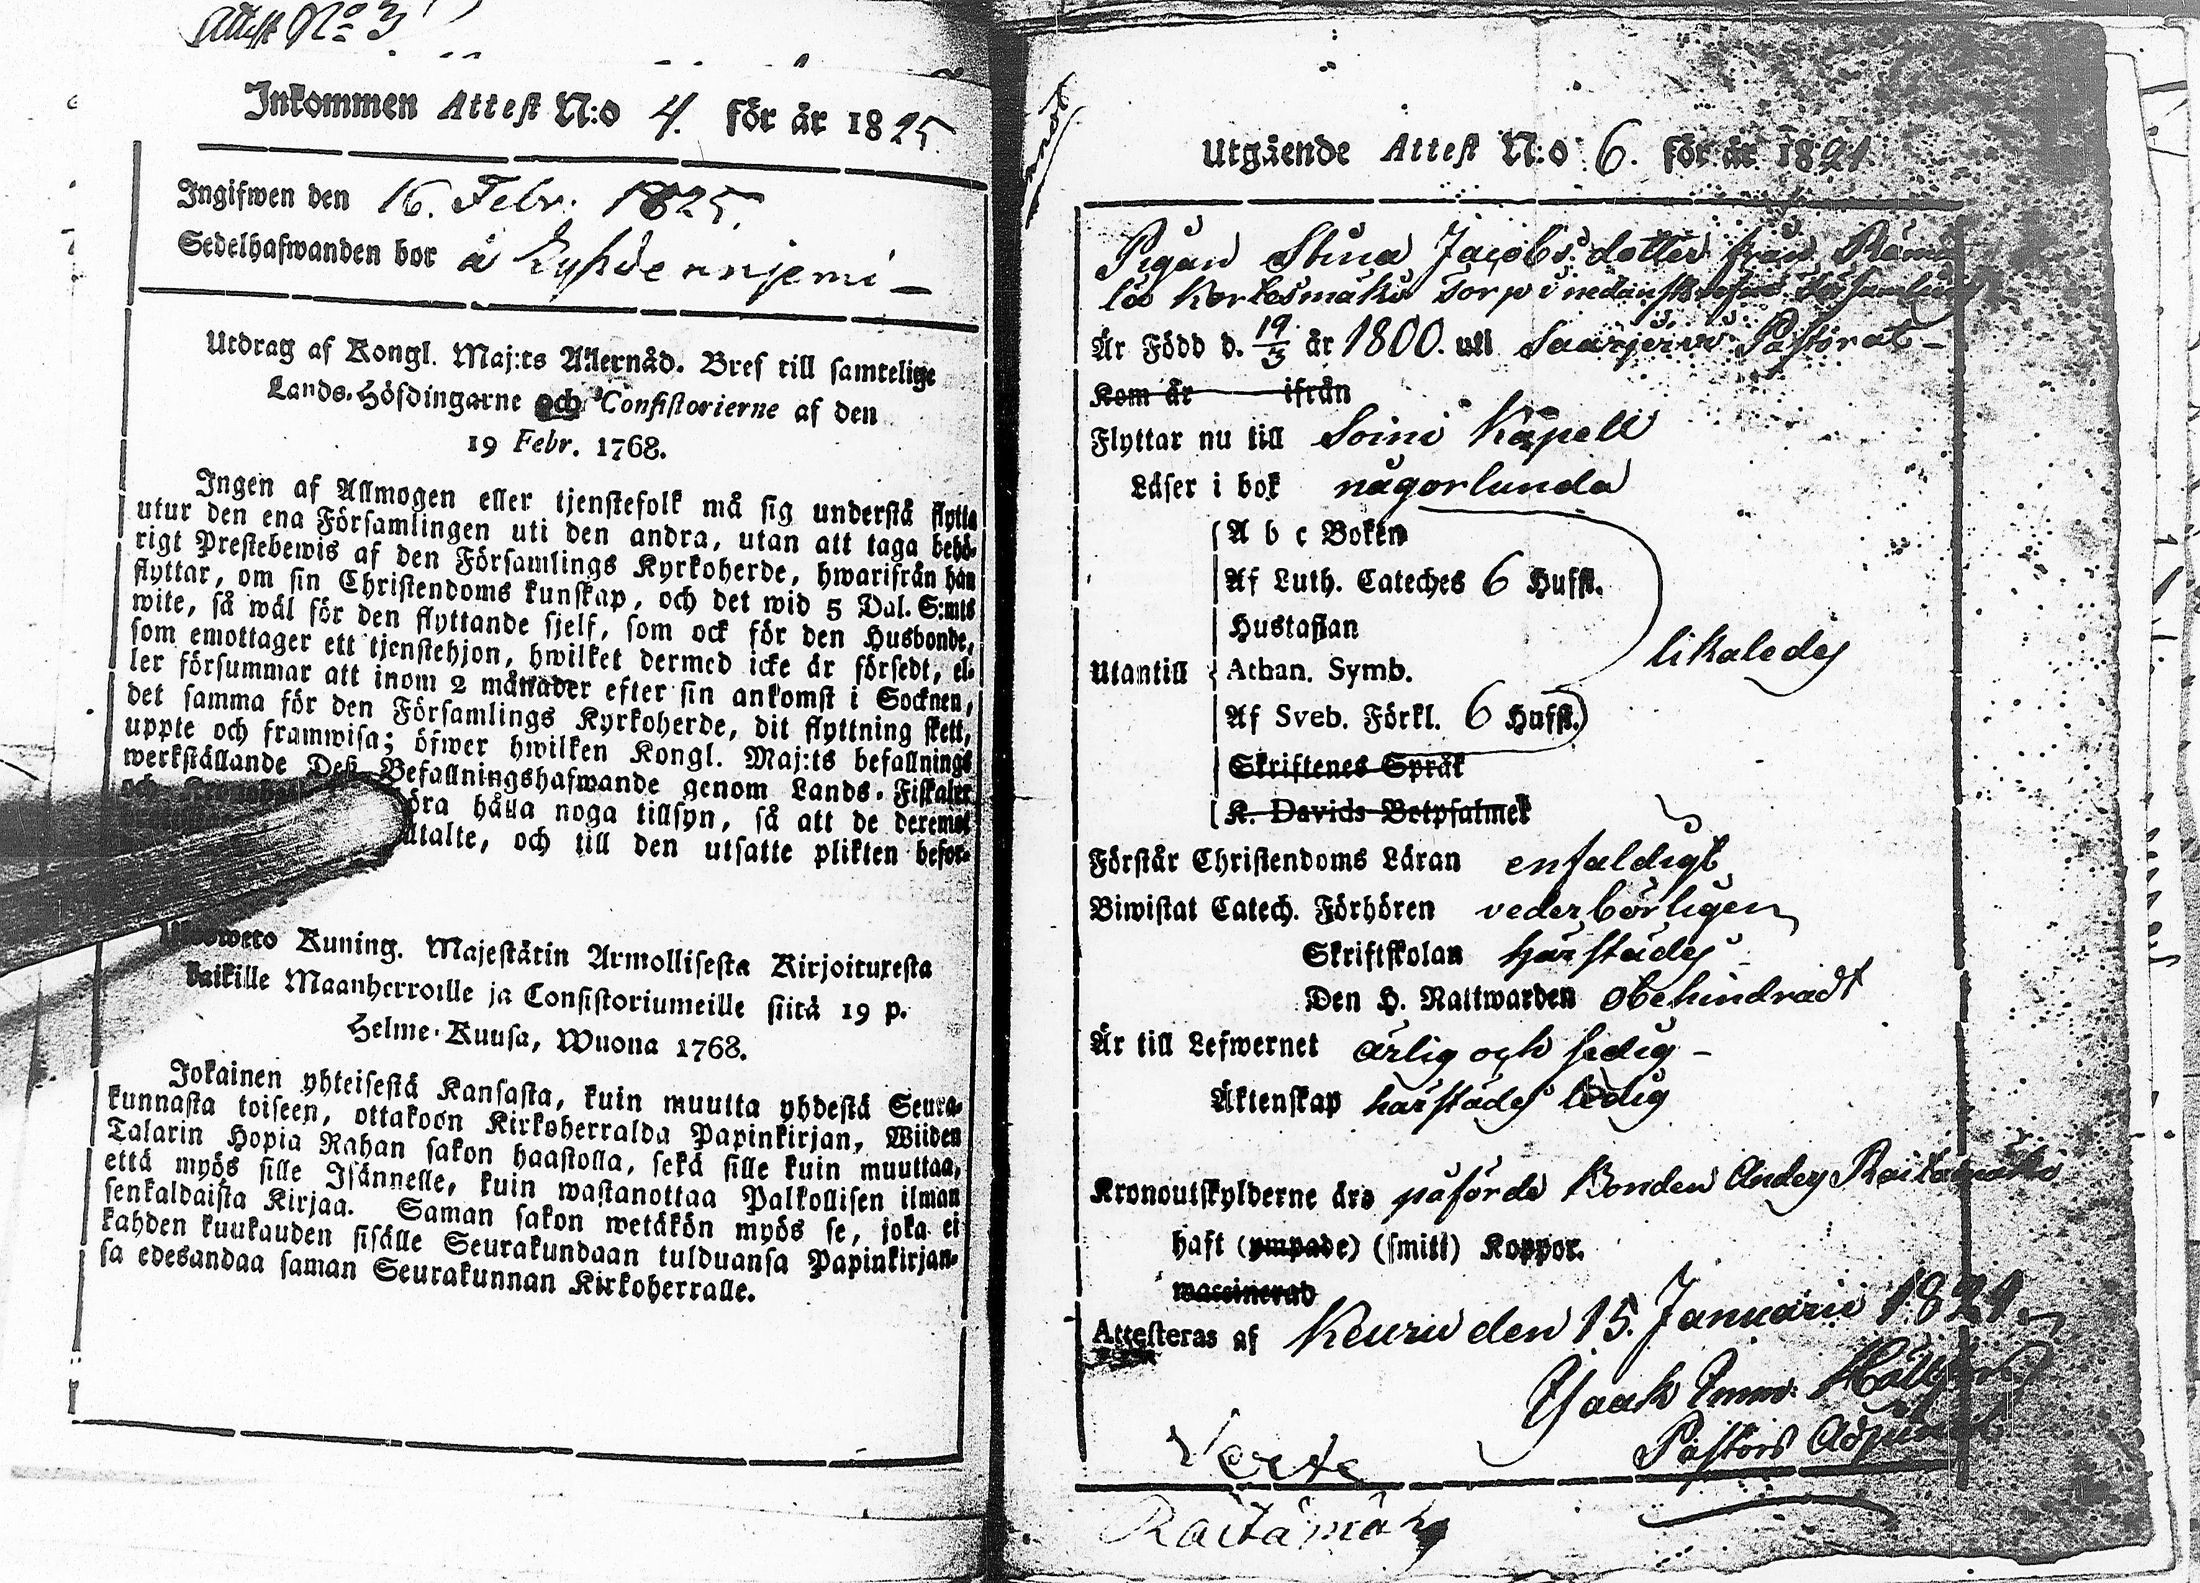 Attest No 3
Inkommen Attest N:o 4. för år 1825.
Ingifwen den 16. Febr. 1825.
Sedelhafwanden bor å
Utdrag af Kongl. Maj:ts Allernåd. Bref till samtelige
Lands-Höfdingarne och Consistorierne af den
19 Febr. 1768.
Ingen af Allmogen eller tjenstefolk må sig understå flytta
utur den ena Församlingen uti den andra, utan att taga behö-
rigt Prestebewis af den Församlings Kyrkoherde, hwarifrån han
flyttar, om sin Christendoms kunskap, och det wid 5 Dal. S:mts
wite, så wäl för den flyttande sjelf, som ock för den Husbonde,
som emottager ett tjenstehjon, hwilket dermed icke är försedt, el-
ler försummar att inom 2 månader efter sin ankomst i Socknen,
det samma för den Församlings Kyrkoherde, dit flyttning skett,
uppte och framwisa; öfwer hwilken Kongl. Maj:ts befallnings
werkställande Deß Befallningshafwande genom Lands-Fiskaler
och hålla noga tillsyn, så att de deremot
och till den utsatte plikten befor-
Kuning. Majestätin Armollisesta Kirjoituxesta
kaikille Maanherroille ja Consistoriumeille siitä 19 p.
Helme-Kuusa, Wuona 1768.
Jokainen yhteisestä Kansasta, kuin muutta yhdestä Seura-
kunnasta toiseen, ottakoon Kirkoherralda Papinkirjan, Wiiden
Talarin Hopia Rahan sakon haastolla, sekä sille kuin muuttaa,
että myös sille Isännelle, kuin wastanottaa Palkollisen ilman
senkaldaista Kirjaa. Saman sakon wetäkön myös se, joka ei
kahden kuukauden sisälle Seurakundaan tulduansa Papinkirjan-
sa edesandaa saman Seurakunnan Kirkoherralle.
Utgående Attest N:o 6. för år 1821
Pigan Stina Jacobsdotter från
torp i
Är Född d. 19/3 år 1800. uti Saarijervi Pastorat
Kom år ifrån
Flyttar nu till Soini Kapell
Läser i bok någorlunda
A b c Boken
Af Luth. Cateches 6 Huffst.
Hustaflan
Utantill Athan. Symb. likaledes
Af Sveb. Förkl. 6 Huffst.
Skriftenes Språk
K. Davids Botpsalmer
Förstår Christendoms Läran enfaldigt
Biwistat Catech. Förhören vederbörligen
Skriftskolan härstädes
Den H. Nattwarden obehindradt
Är till Lefwernet ärlig och sedig
Äktenskap härstädes ledig
Kronoutskylderne äro påförde Bonden Anders Raitamäki
haft (ympade) (smitt) Koppor.
waccinerad
Attesteras af Keuru den 15. Januarii 1821.
Isaak
Pastors Adjunct.
Verte
Raitamäki